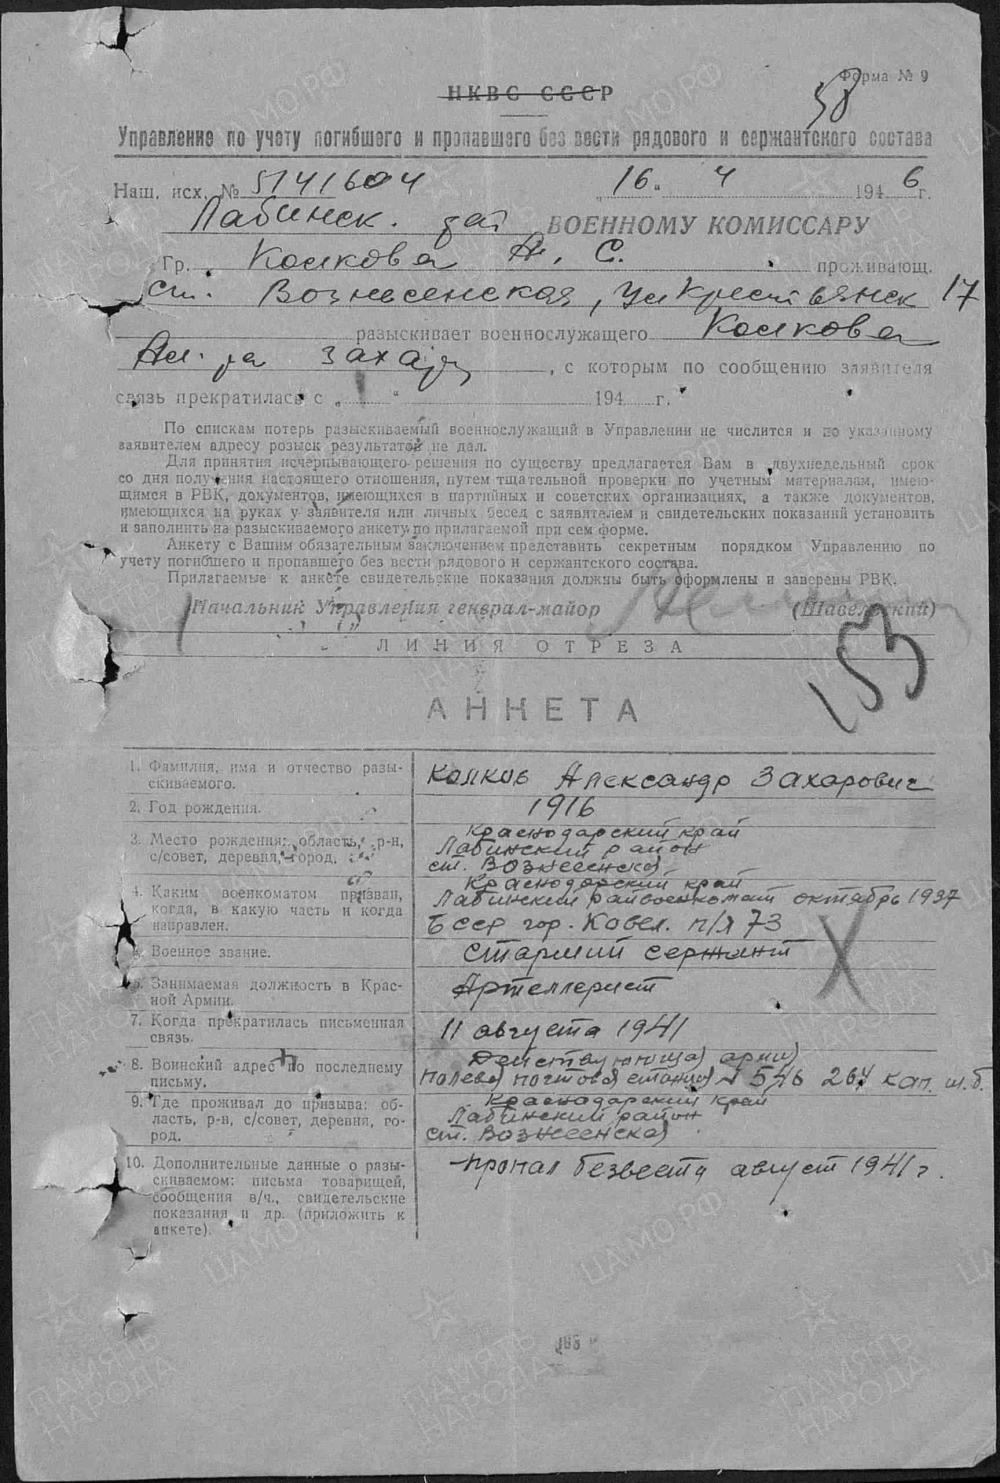 Форма № 9
58
НКВС СССР
Управление по учету погибшего и пропавшего без вести рядового и сержантского состава
Наш. исх. № 5141604 „16“ 4 1946 г.
Лабинск. рай ВОЕННОМУ КОМИССАРУ
Гр. Колкова А. С. проживающ.
ст. Вознесенская, ул Крестьянск 17
разыскивает военнослужащего Колкова
Ал-ра Захар, с которым по сообщению заявителя
связь прекратилась с „ “ 194 г.
По спискам потерь разыскиваемый военнослужащий в Управлении не числится и по указанному
заявителем адресу розыск результатов не дал.
Для принятия исчерпывающего решения по существу предлагается Вам в двухнедельный срок
со дня получения настоящего отношения, путем тщательной проверки по учетным материалам, имею-
щимся в РВК, документов, имеющихся в партийных и советских организациях, а также документов,
имеющихся на руках у заявителя или личных бесед с заявителем и свидетельских показаний установить
и заполнить на разыскиваемого анкету по прилагаемой при сем форме.
Анкету с Вашим обязательным заключением представить секретным порядком Управлению по
учету погибшего и пропавшего без вести рядового и сержантского состава.
Прилагаемые к анкете свидетельские показания должны быть оформлены и заверены РВК.
Начальник Управления генерал-майор (Шавельский)
ЛИНИЯ ОТРЕЗА
153
АНКЕТА
1. Фамилия, имя и отчество разы-
скиваемого.
Колков Александр Захарович
2. Год рождения.
1916
3. Место рождения: область, р-н,
с/совет, деревня, город,
Краснодарский край
Лабинский район
ст. Вознесенская
4. Каким военкоматом призван,
когда, в какую часть и когда
направлен.
Краснодарский край
Лабинский райвоенкомат октябрь 1937
Бсср гор. Ковел. п/я 73
5. Военное звание.
старший сержант
6. Занимаемая должность в Крас-
ной Армии.
Артеллерист
7. Когда прекратилась письменная
связь.
11 августа 1941
8. Воинский адрес по последнему
письму.
Действующая армия
полевая почтовая станция № 546 264 кап. ш.б.
9. Где проживал до призыва: об-
ласть, р-н, с/совет, деревня, го-
род.
Краснодарский край
Лабинский район
ст. Вознесенская
10. Дополнительные данные о разы-
скиваемом: письма товарищей,
сообщения в/ч., свидетельские
показания и др. (приложить к
анкете).
пропал безвести август 1941 г.
ПАМЯТЬ
НАРОДА
ЦАМО.РФ